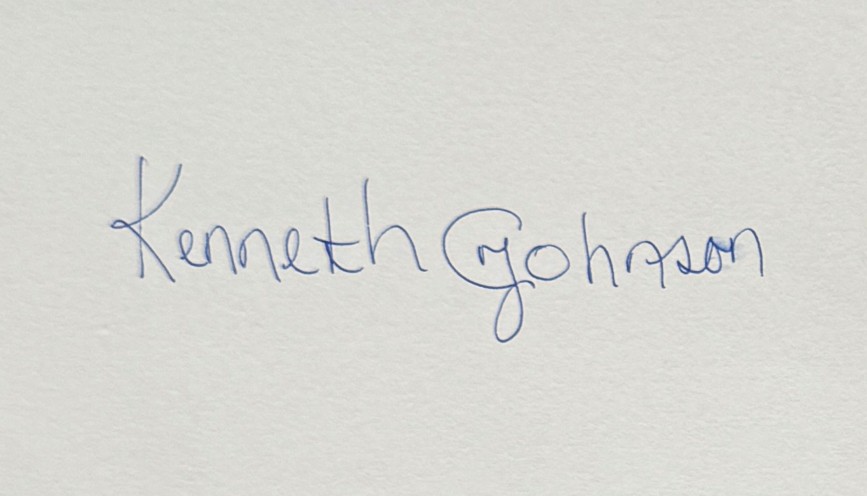 Kenneth Johnson